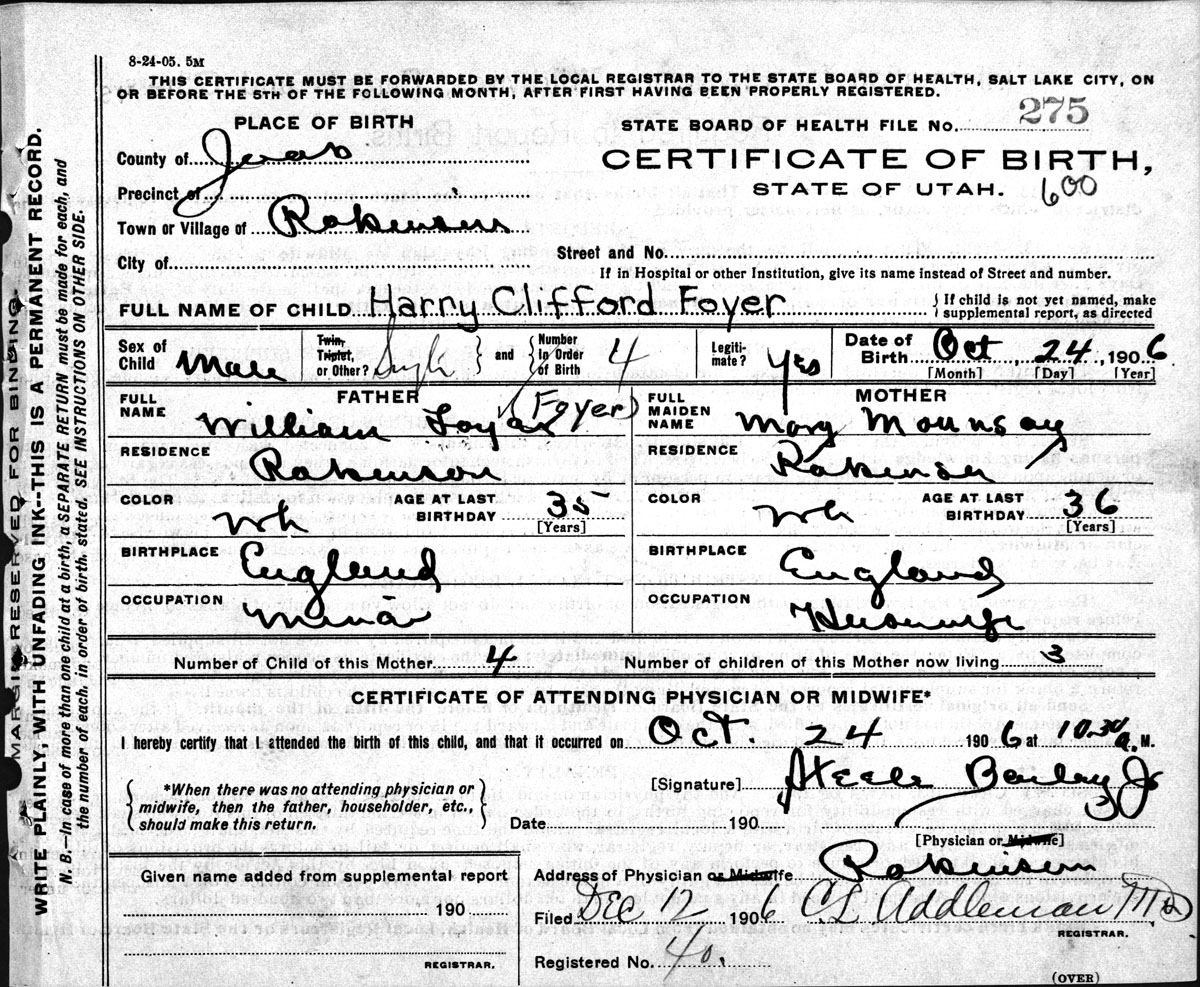 8-24-05. 5M
THIS CERTIFICATE MUST BE FORWARDED BY THE LOCAL REGISTRAR TO THE STATE BOARD OF HEALTH, SALT LAKE CITY, ON
OR BEFORE THE 5TH OF THE FOLLOWING MONTH, AFTER FIRST HAVING BEEN PROPERLY REGISTERED.
PLACE OF BIRTH
STATE BOARD OF HEALTH FILE No. 275
County of Juab
CERTIFICATE OF BIRTH,
STATE OF UTAH. 600
Precinct of
Town or Village of Robinson
Street and No.
City of
If in Hospital or other Institution, give its name instead of Street and number.
FULL NAME OF CHILD Harry Clifford Foyer
} If child is not yet named, make
supplemental report, as directed
Sex of Child Male
Twin, Triplet, or Other? Single } and { Number In Order of Birth 4
Legiti-mate? Yes
Date of Birth Oct, 24, 1906
[Month] [Day] [Year]
FATHER
FULL NAME William Foyer (Foyer)
RESIDENCE Robinson
COLOR Wh
AGE AT LAST BIRTHDAY 35
[Years]
BIRTHPLACE England
OCCUPATION Miner
MOTHER
FULL MAIDEN NAME Mary Mounsay
RESIDENCE Robinson
COLOR Wh
AGE AT LAST BIRTHDAY 36
[Years]
BIRTHPLACE England
OCCUPATION Housewife
Number of Child of this Mother 4
Number of children of this Mother now living 3
CERTIFICATE OF ATTENDING PHYSICIAN OR MIDWIFE*
I hereby certify that I attended the birth of this child, and that it occurred on Oct. 24 1906 at 10.30 a. M.
{ *When there was no attending physician or
midwife, then the father, householder, etc.,
should make this return. }
[Signature] Steele Bailey Jr
3
Date 190
[Physician or Midwife]
Address of Physician or Midwife Robinson
Given name added from supplemental report
190
REGISTRAR.
Filed Dec 12 1906 CL Addleman MD
REGISTRAR.
Registered No. 40.
(OVER)
MARGIN RESERVED FOR BINDING
WRITE PLAINLY, WITH UNFADING INK--THIS IS A PERMANENT RECORD.
N. B.—In case of more than one child at a birth, a SEPARATE RETURN must be made for each, and
the number of each, in order of birth, stated. SEE INSTRUCTIONS ON OTHER SIDE.